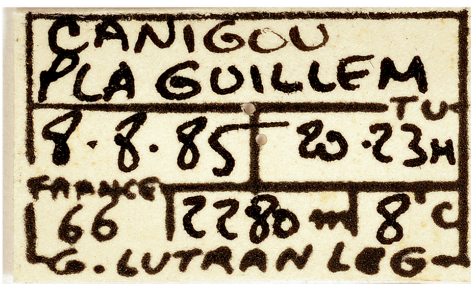 CANIGOU
PLA GUILLEM
TU
8.8.85 20.23H
FRANCE
66 2280m 8°C
G. LUTRAN LEG